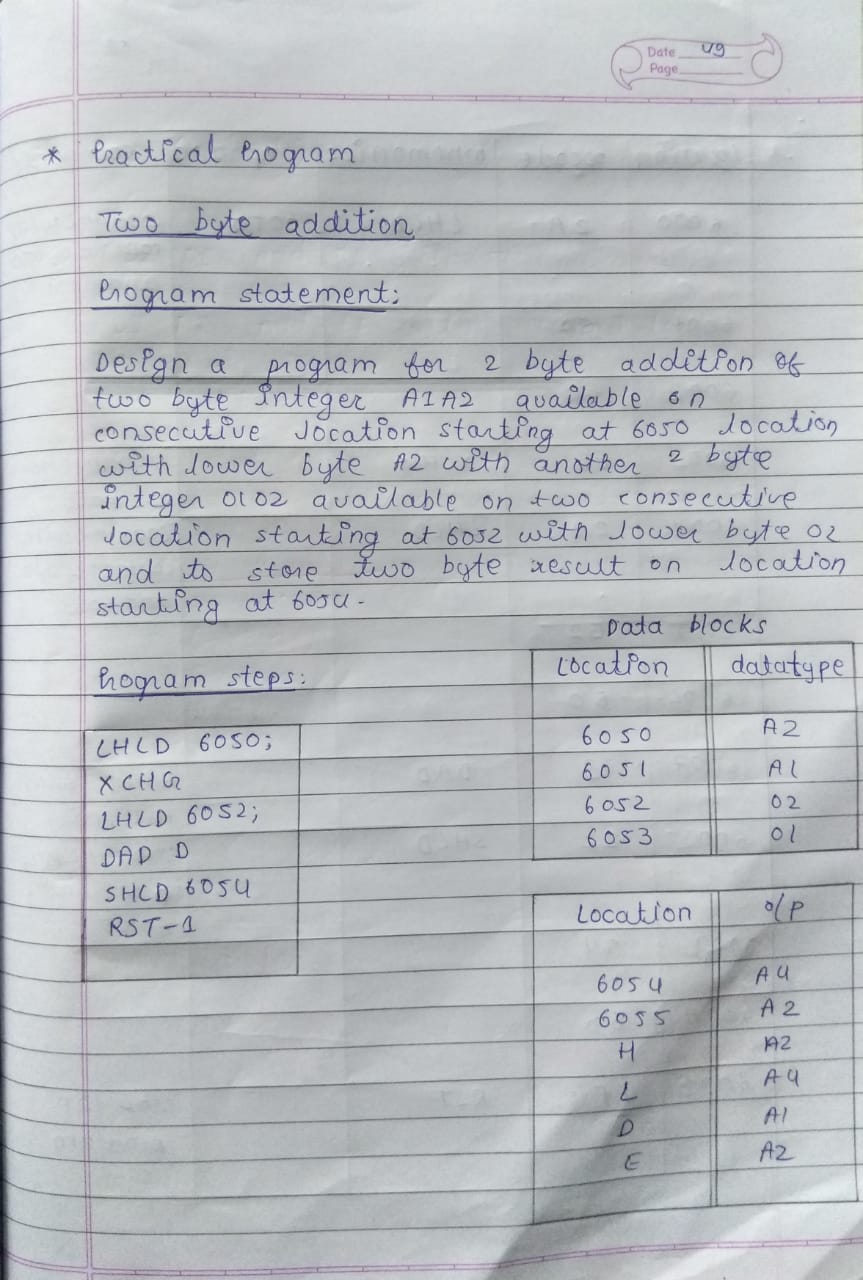 Date 49
Page
* Practical Program
Two byte addition
Program statement:
Design a program for 2 byte addition of
two byte integer A1A2 available on
consecutive location starting at 6050 location
with lower byte A2 with another 2 byte
integer 0102 available on two consecutive
location starting at 6052 with lower byte 02
and to store two byte result on location
starting at 6054.
Data blocks
Program steps:
Location datatype
LHLD 6050;
XCHG
LHLD 6052;
DAD D
SHLD 6054
RST-1
6050 A2
6051 A1
6052 02
6053 01
Location O/P
6054 A4
6055 A2
H A2
L A4
D A1
E A2